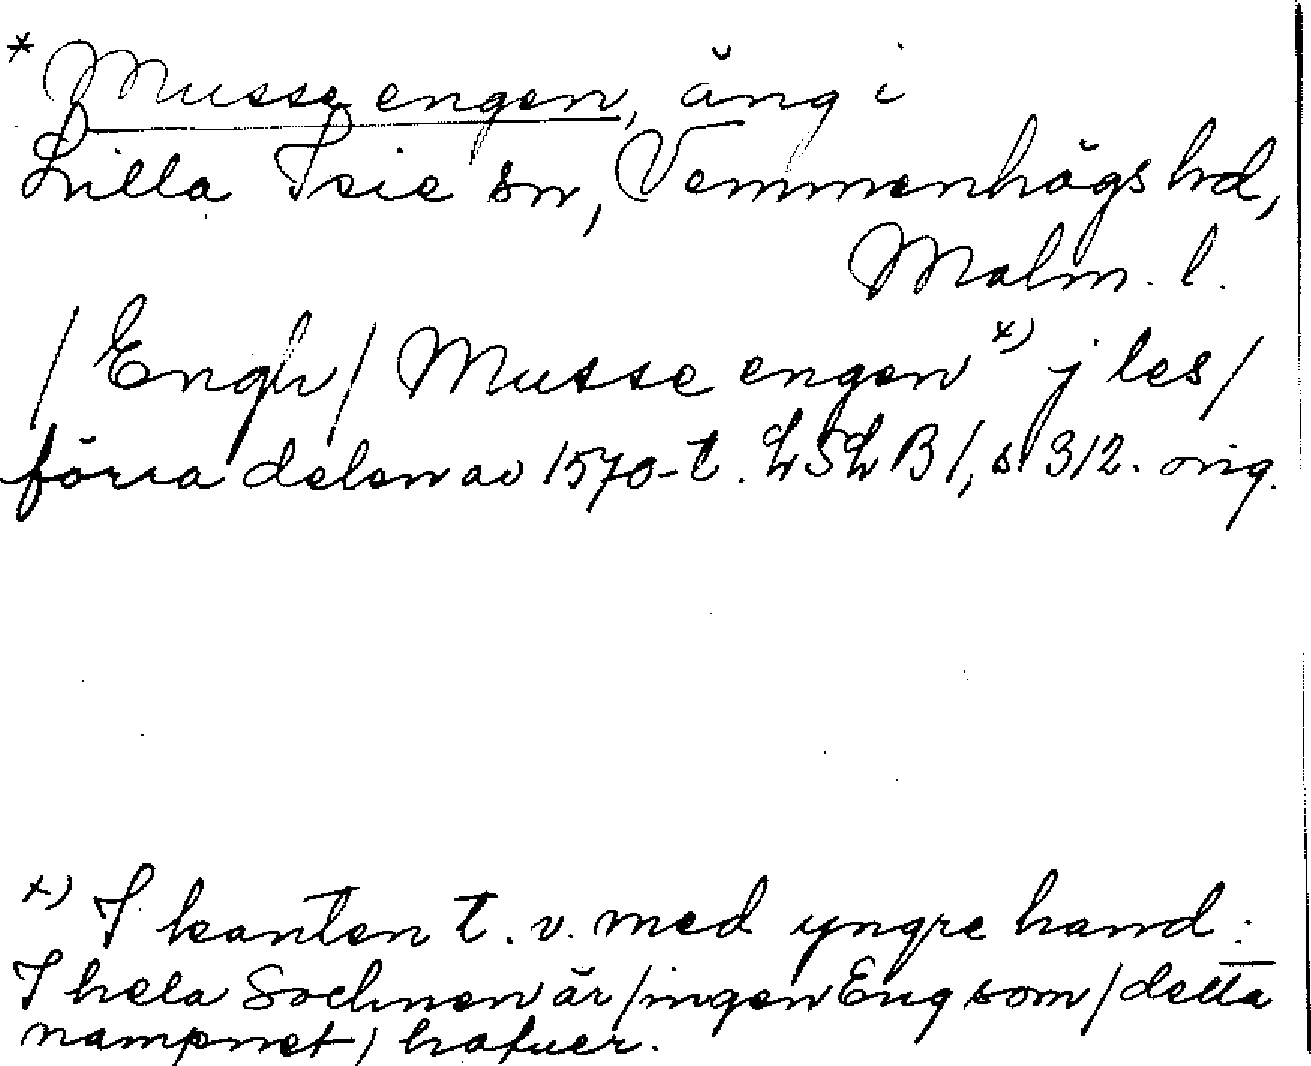 * Musse engen, äng i
Lilla Isie sn, Vemmenhögs hd,
Malm. l.
/ Engh / Musse engen x) j les /
förra delen av 1570-t. LSLB 1, s 312. orig.
x) I kanten t. v. med yngre hand:
I hela Sochnen är / ingen Eng som / detta
nampnet / hafuer.